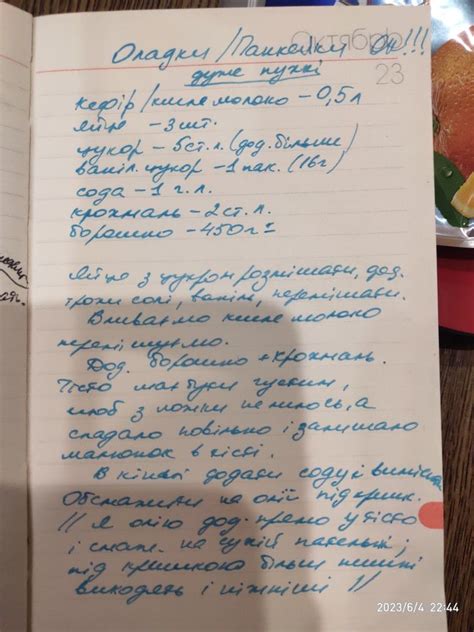 Октябрь
Оладки/Панкейки Ок!!!
дуже пухкі
23
кефір/кисле молоко – 0,5 л
яйце – 3 шт.
цукор – 5 ст. л. (дод. більше)
ваніл. цукор – 1 пак. (16г)
сода – 1 г. л.
крохмаль – 2 ст. л.
борошно – 450 г
Яйце з цукром розмішати, дод.
трохи солі, ванілін, перемішати.
Вливаємо кисле молоко
перемішуємо.
Дод. борошно + крохмаль.
Тісто має бути густим,
щоб з ложки не лилось, а
спадало повільно і залишало
малюнок в тісті.
В кінці додати соду і вимішати
Обсмажити на олії під кришк.
// Я олію дод. прямо у тісто
і смаж. на сухій пательні;
під кришкою більш пишні
виходять і ніжніші //
2023/6/4 22:44